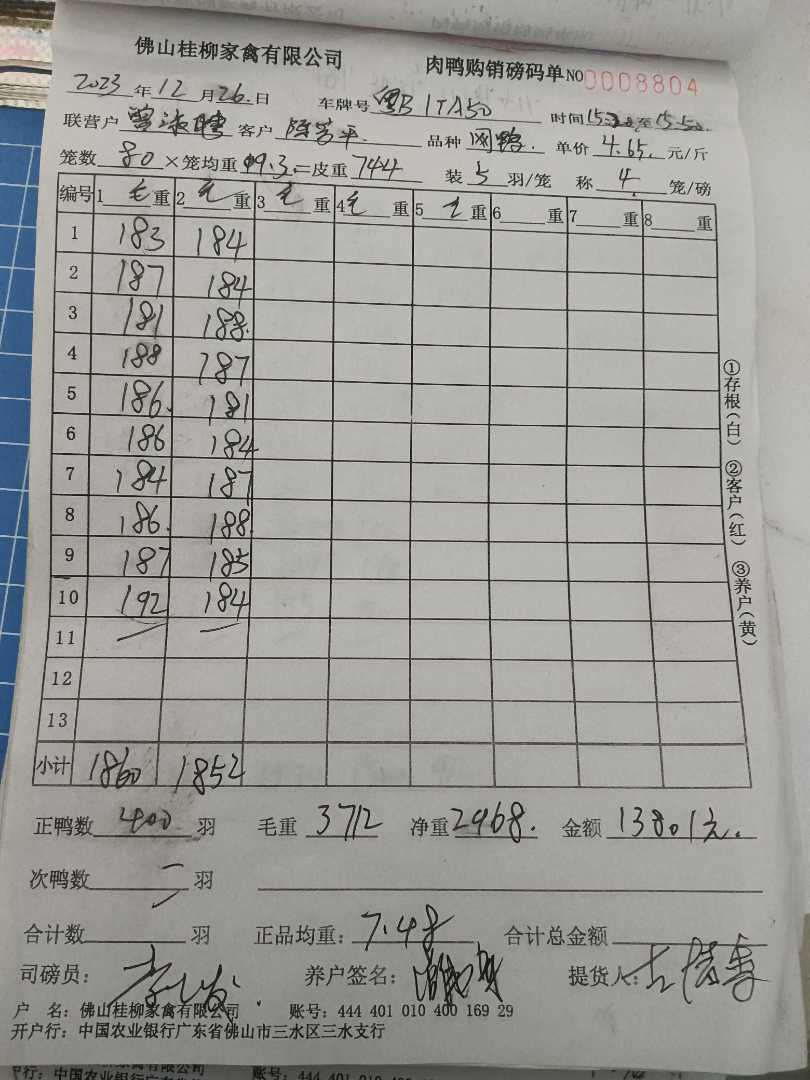 佛山桂柳家禽有限公司 肉鸭购销磅码单 NO 0008804
2023年12月26.日 车牌号 粤B 1TA50 时间 至15:50.
联营户 客户 品种 单价 4.65.元/斤
笼数 80 ×笼均重 9.3.=皮重 744 装 5 羽/笼 称 4. 笼/磅
编号 1毛重 2毛重 3毛重 4毛重 5毛重 6重 7重 8重
1 183 184
2 187 184
3 181 188.
4 188 187
5 186. 181
6 186 184
7 184 187
8 186. 188
9 187 185
10 192 184
11
12
13
小计 1860 1852
正鸭数 400 羽 毛重 3712 净重 2968. 金额 13801元.
次鸭数 羽
合计数 羽 正品均重: 7.4斤 合计总金额
司磅员: 养户签名: 提货人:
户 名: 佛山桂柳家禽有限公司 账号: 444 401 010 400 169 29
开户行: 中国农业银行广东省佛山市三水区三水支行
①存根(白) ②客户(红) ③养户(黄)